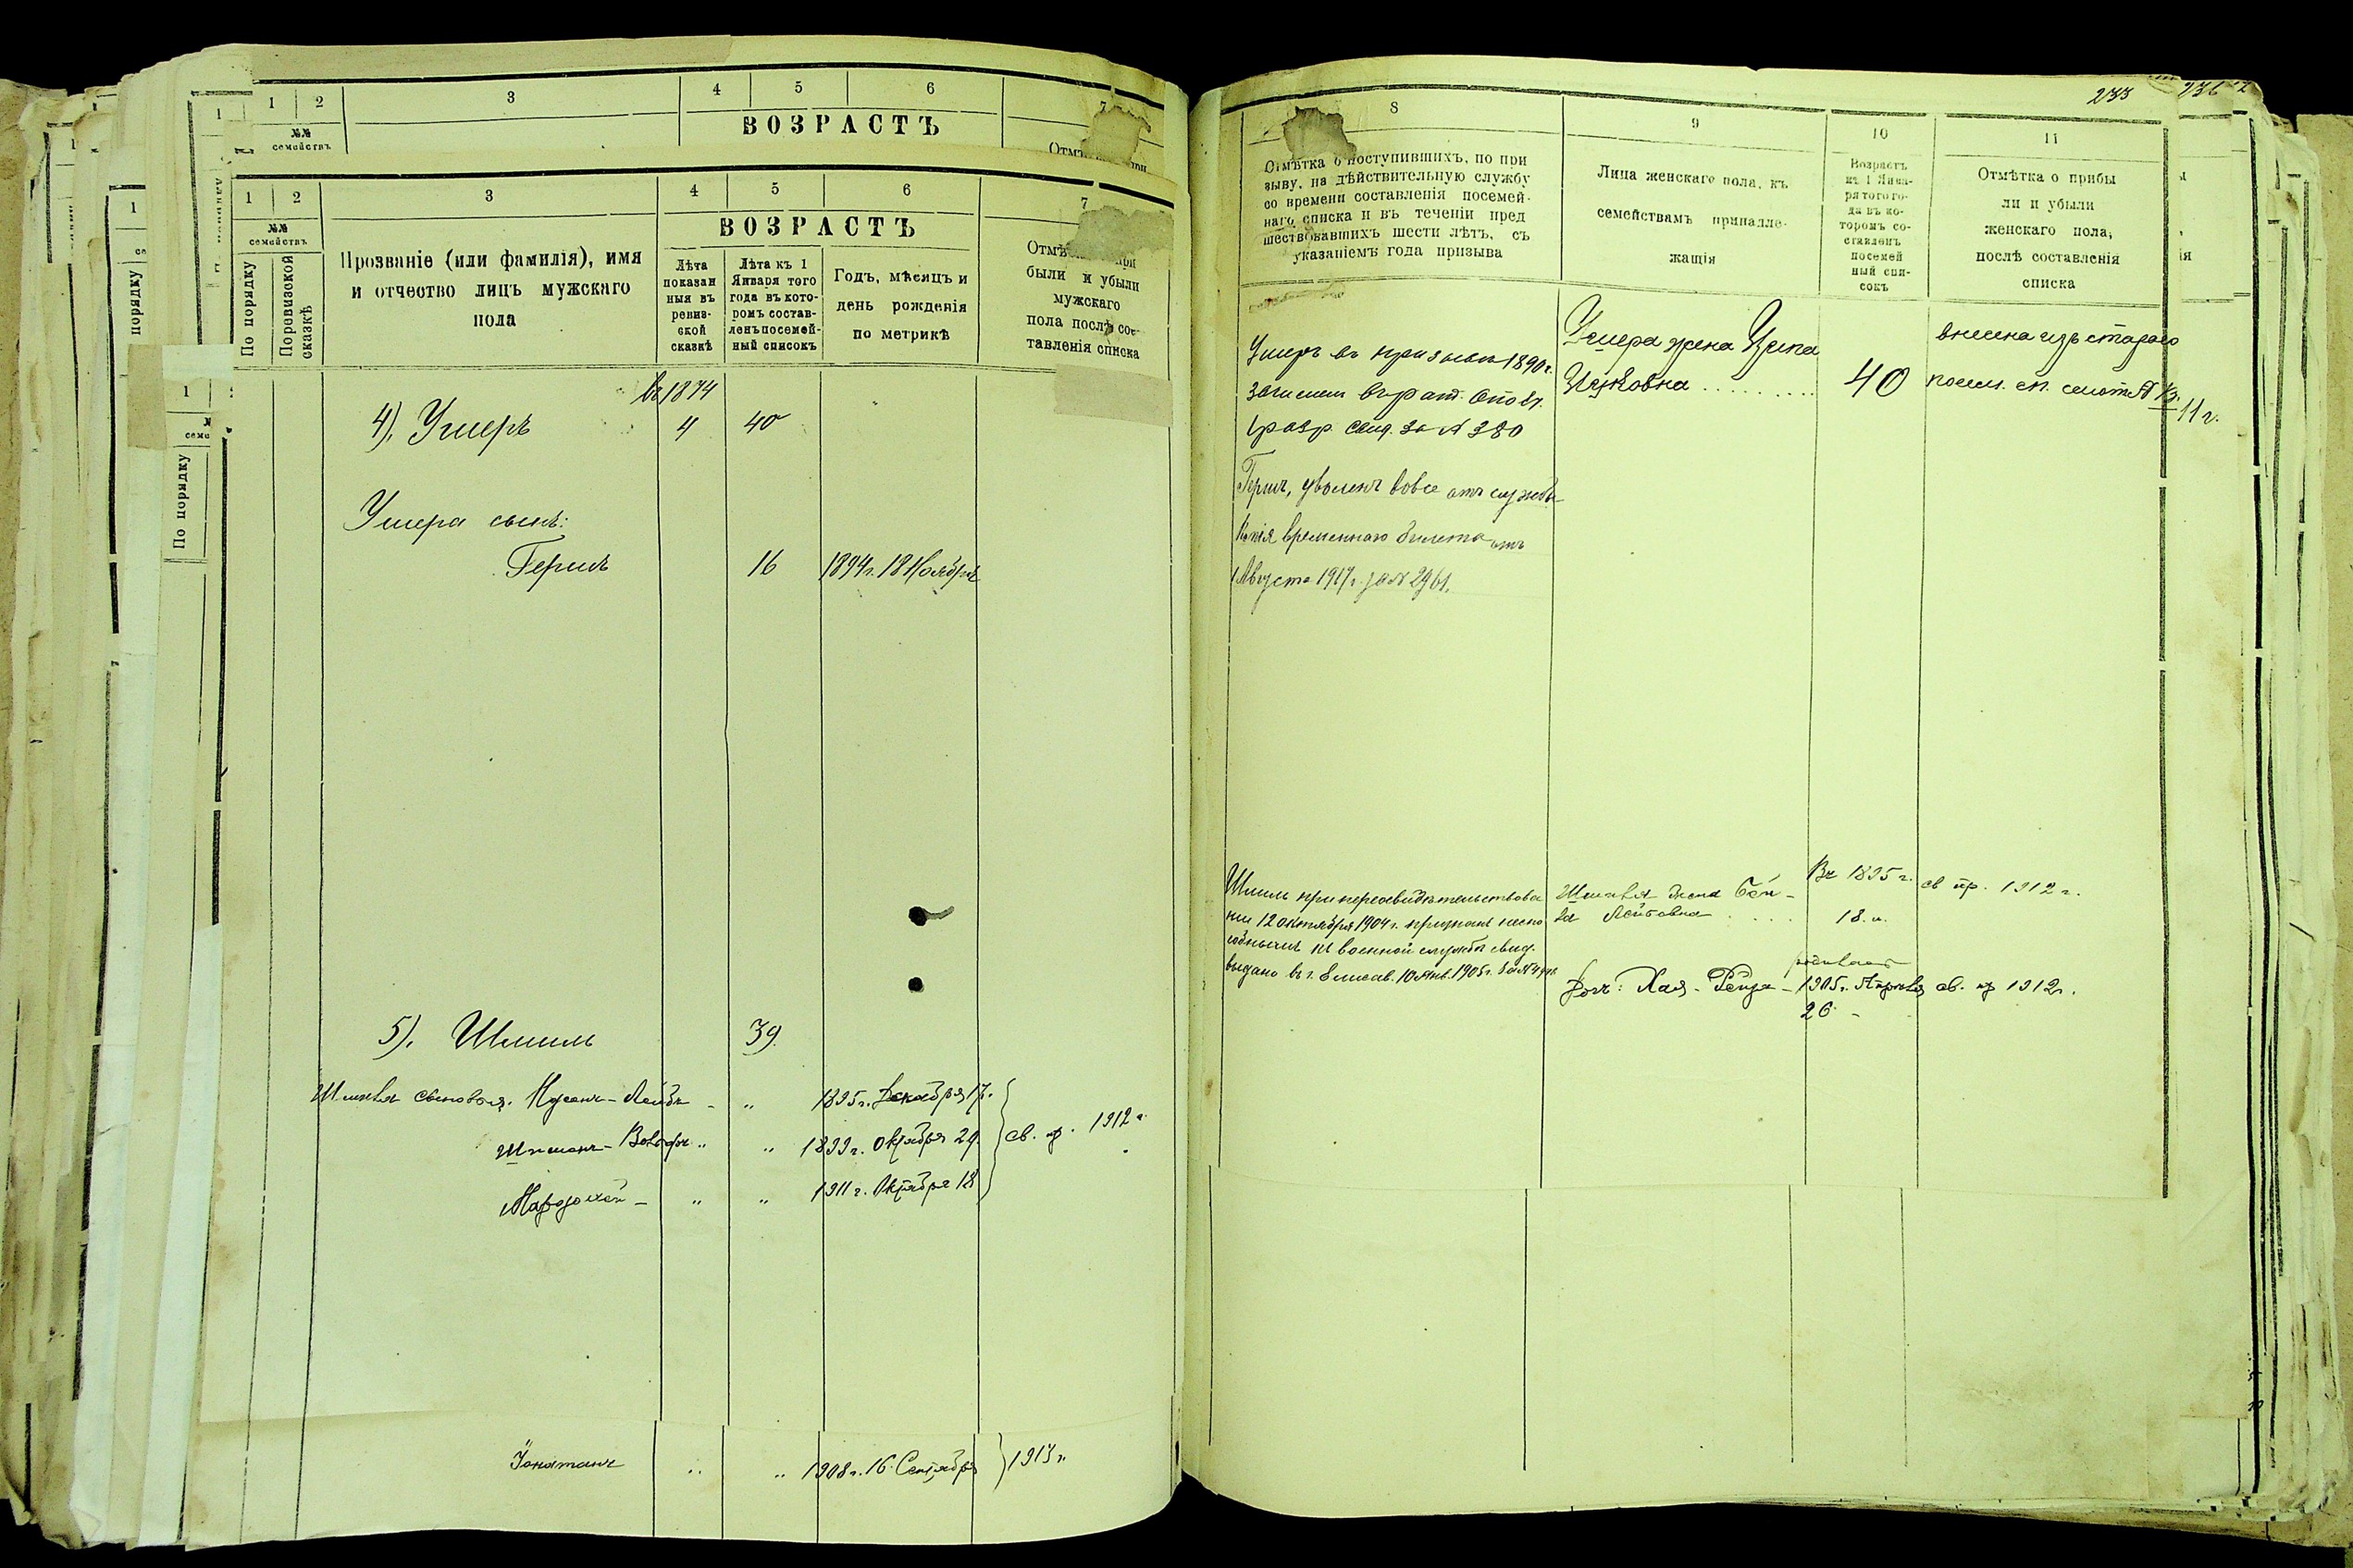 1 2 3 4 5 6 7
№№
семействъ
ВОЗРАСТЪ
1 2 3 4 5 6 7
№№
семействъ
По порядку
Поревизской сказкѣ
Прозваніе (или фамилія), имя
и отчество лицъ мужскаго
пола
ВОЗРАСТЪ
Лѣта
показан
ныя въ
ревиз-
ской
сказкѣ
Лѣта къ 1
Января того
года въ кото-
ромъ состав-
ленъ посемей-
ный списокъ
Годъ, мѣсяцъ и
день рожденія
по метрикѣ
были и убыли
мужскаго
пола послѣ сос-
тавленія списка
въ 1874
4). Ушеръ 4 40
Ушера сынъ:
Гершъ 16 1894 г. 18 Ноября
5). Шмиль 39
Шмиля сыновья. Нусенъ-Лейбъ - „ 1895 г. Декабря 17.
Шимонъ-Вольфъ „ „ 1899 г. Октября 29. св. пр. 1912 г.
Мордохай - „ „ 1911 г. Октября 18
Іонатанъ „ „ 1908 г. 16 Сентября 1913 г.
233 236
8 9 10 11
Отмѣтка о поступившихъ, по при
зыву, на дѣйствительную службу
со времени составленія посемей-
наго списка и въ теченіи пред
шествовавшихъ шести лѣтъ, съ
указаніемъ года призыва
Лица женскаго пола, къ
семействамъ принадле-
жащія
Возрастъ
къ 1 Янва-
ря того го-
да въ ко-
торомъ со-
ставленъ
посемей
ный спи-
сокъ
Отмѣтка о прибы
ли и убыли
женскаго пола,
послѣ составленія
списка
Ушеръ въ призывъ 1890 г.
зачисленъ въ рат. ополч.
1 разр. свид. за № 380
Ушера жена Ципа
Ицковна . . . . . . . . 40
внесена изъ стараго
посем. сп.
11 г.
Гершъ, уволенъ вовсе отъ службы
Копія временнаго билета отъ
1 Августа 1917 г. за № 2961.
Шмиль при переосвидѣтельствова
ніи 12 октября 1904 г. признанъ неспо
собнымъ къ военной службѣ свид.
выдано въ г. Елисав. 10 Янв. 1905 г. за №
Шмиля жена Бей-
ла Лейбовна . . . .
Въ 1895 г.
18 л.
св пр. 1912 г.
родилась
Дочь: Хая-Рейза - 1905 г. Апрѣля
26 -
св. пр 1912 г.